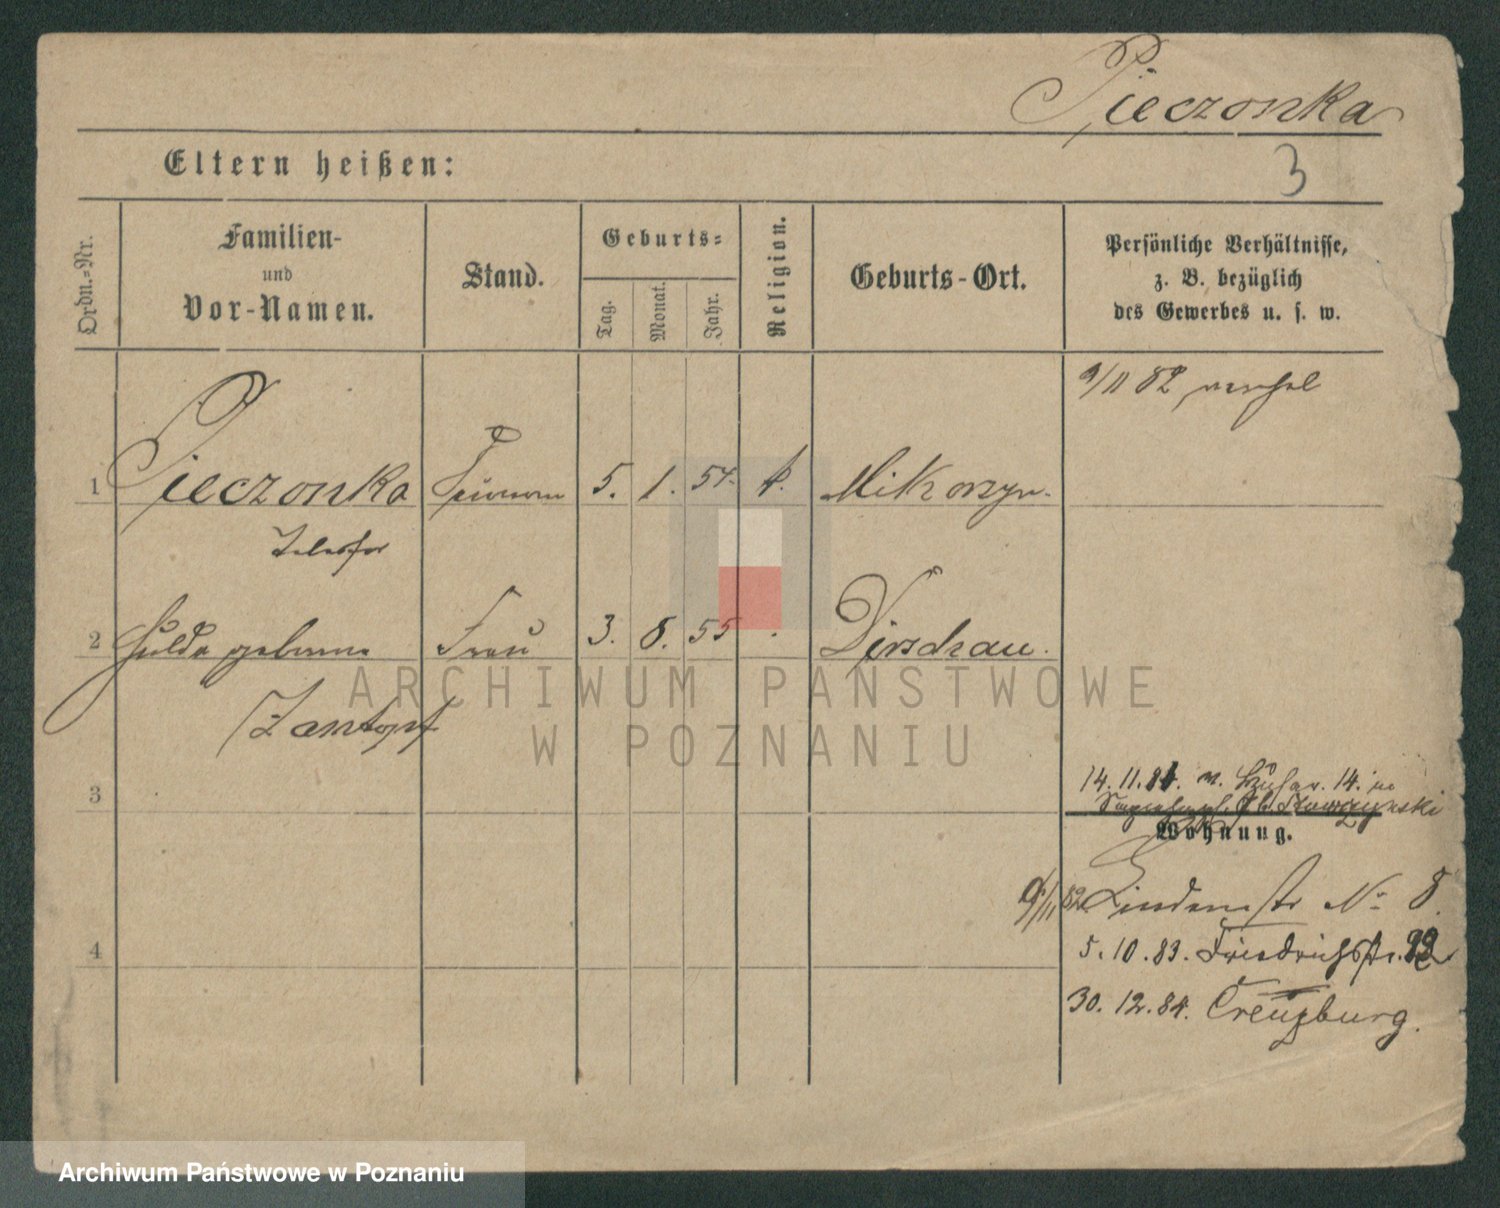 Pieczonka
3
Eltern heißen:
Ordn.-Nr.
Familien-
und
Vor-Namen.
Stand.
Geburts-
Tag.
Monat.
Jahr.
Religion.
Geburts-Ort.
Persönliche Verhältnisse,
z. B. bezüglich
des Gewerbes u. s. w.
9/11 82
1 Pieczonka 5. 1. 54. k. Mikorzyn.
Telesfor
2 Hulda geborene Frau 3. 8. 55 Dirschau.
Zantopf
ARCHIWUM PAŃSTWOWE
W POZNANIU
3
14. 11. 84. 14.
Wohnung.
9/11 82 Lindenstr No 8.
4
5. 10. 83. Friedrichstr.
30. 12. 84. Creuzburg.
Archiwum Państwowe w Poznaniu